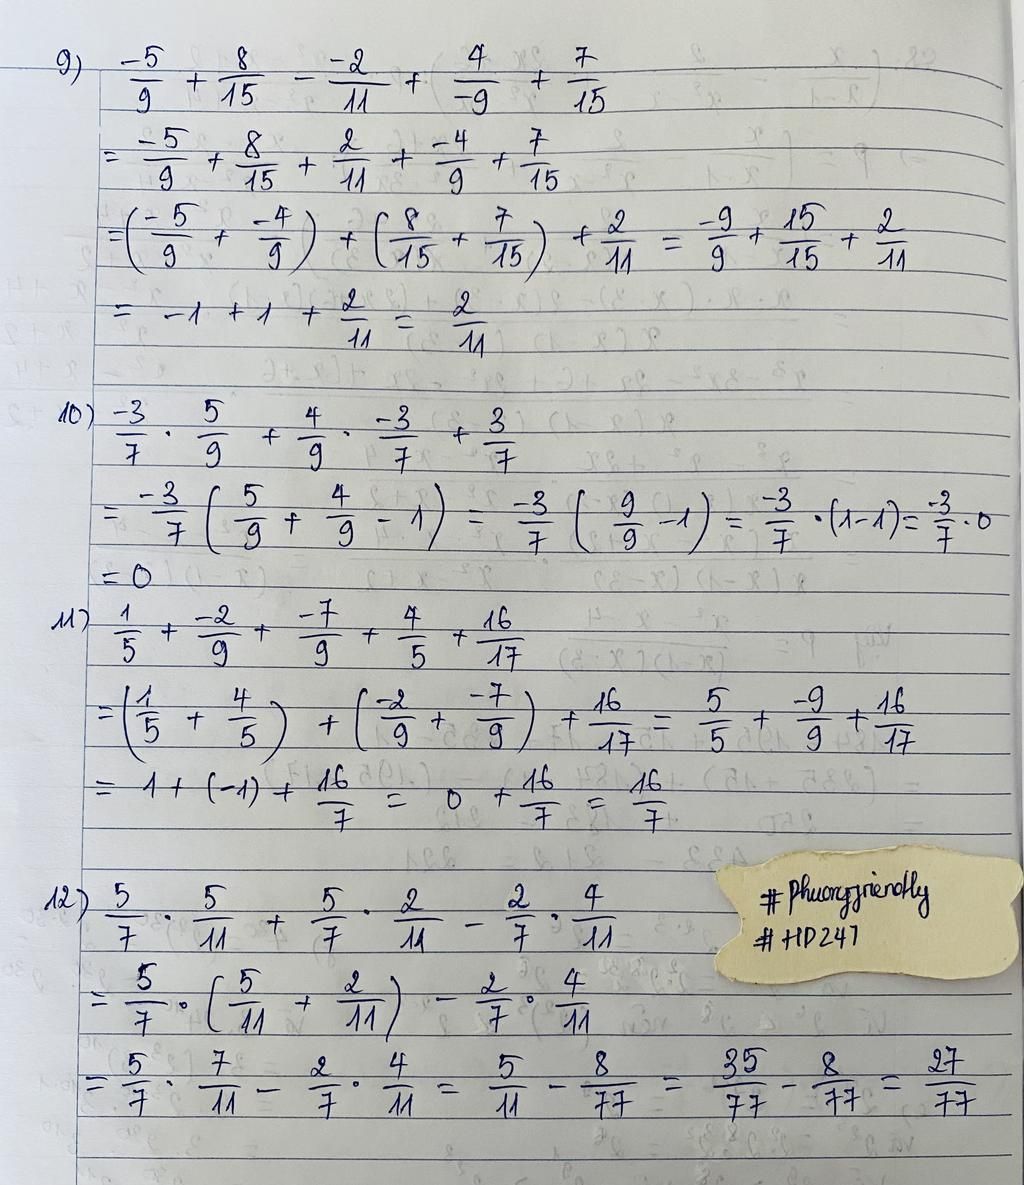 9) -5/9 + 8/15 - -2/11 + 4/-9 + 7/15
= -5/9 + 8/15 + 2/11 + -4/9 + 7/15
= (-5/9 + -4/9) + (8/15 + 7/15) + 2/11 = -9/9 + 15/15 + 2/11
= -1 + 1 + 2/11 = 2/11
10) -3/7 . 5/9 + 4/9 . -3/7 + 3/7
= -3/7 (5/9 + 4/9 - 1) = -3/7 (9/9 - 1) = -3/7 . (1-1) = -3/7 . 0
= 0
11) 1/5 + -2/9 + -7/9 + 4/5 + 16/17
= (1/5 + 4/5) + (-2/9 + -7/9) + 16/17 = 5/5 + -9/9 + 16/17
= 1 + (-1) + 16/7 = 0 + 16/7 = 16/7
12) 5/7 . 5/11 + 5/7 . 2/11 - 2/7 . 4/11
= 5/7 . (5/11 + 2/11) - 2/7 . 4/11
= 5/7 . 7/11 - 2/7 . 4/11 = 5/11 - 8/77 = 35/77 - 8/77 = 27/77
#HD247